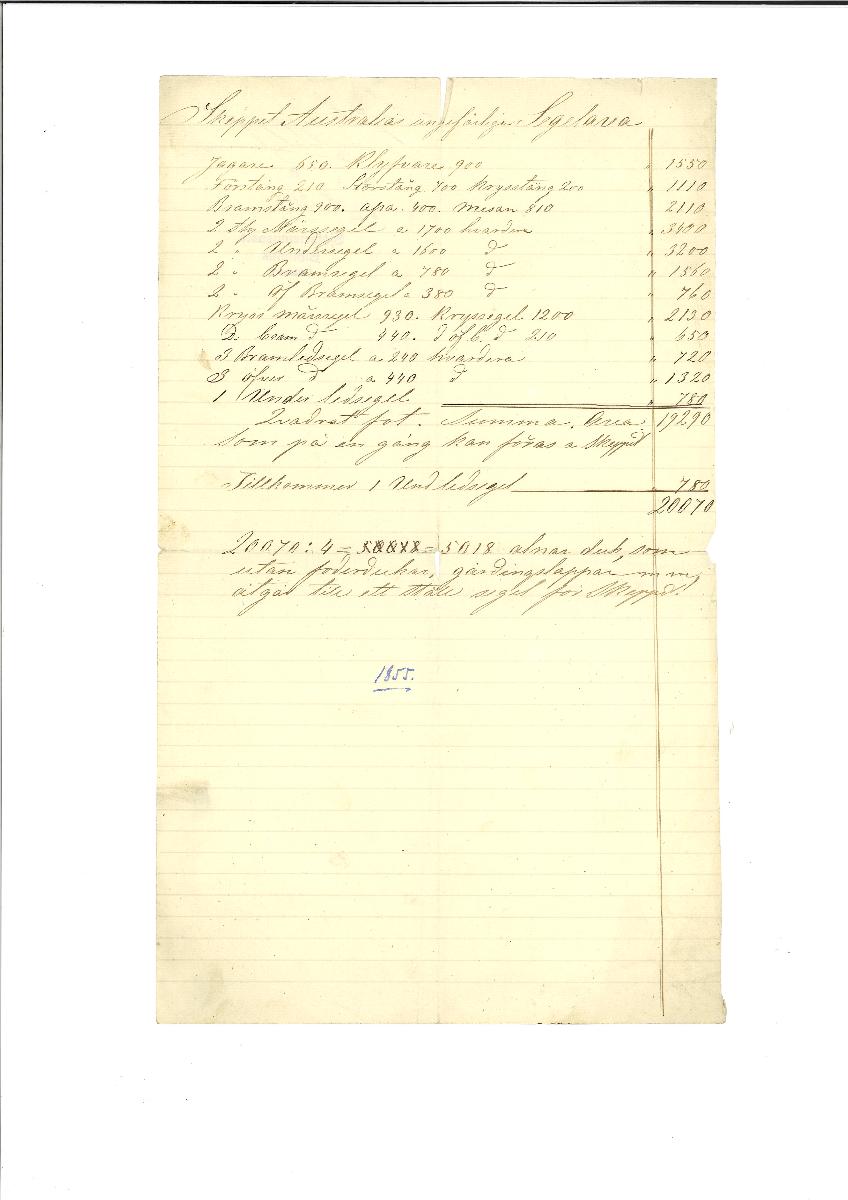 Skeppet Australias ungefärlige Segelarea
Jagare 650. Klyfvare 900 " 1550
Förstäng 210 Storstäng 700 Krysstäng 200 " 1110
Bramstäng 900. Apa. 400. Mesan 810 2110
2 Sty Märssegel a 1700 hvardera " 3400
2 " Undersegel a 1600 d " 3200
2 " Bramsegel a 780 d " 1560
2 " Öf Bramsegel a 380 d " 760
Kryss märssegel 930. Kryssegel 1200 " 2130
D. bram d 440. d öf b. d 210 " 650
3 Bramledsegel a 240 hvardera " 720
3 öfver d a 440 d " 1320
1 Under ledsegel " 780
Qvadrat fot. Summa. Area 19290
Som på en gång kan föras a Skeppet
Tillkommer 1 Und ledsegel " 780
20070
20070: 4 = = 5018 alnar duk, som
utan foderdukar, gårdingslappar m m,
åtgår till ett ställ segel för Skeppet.
1855.